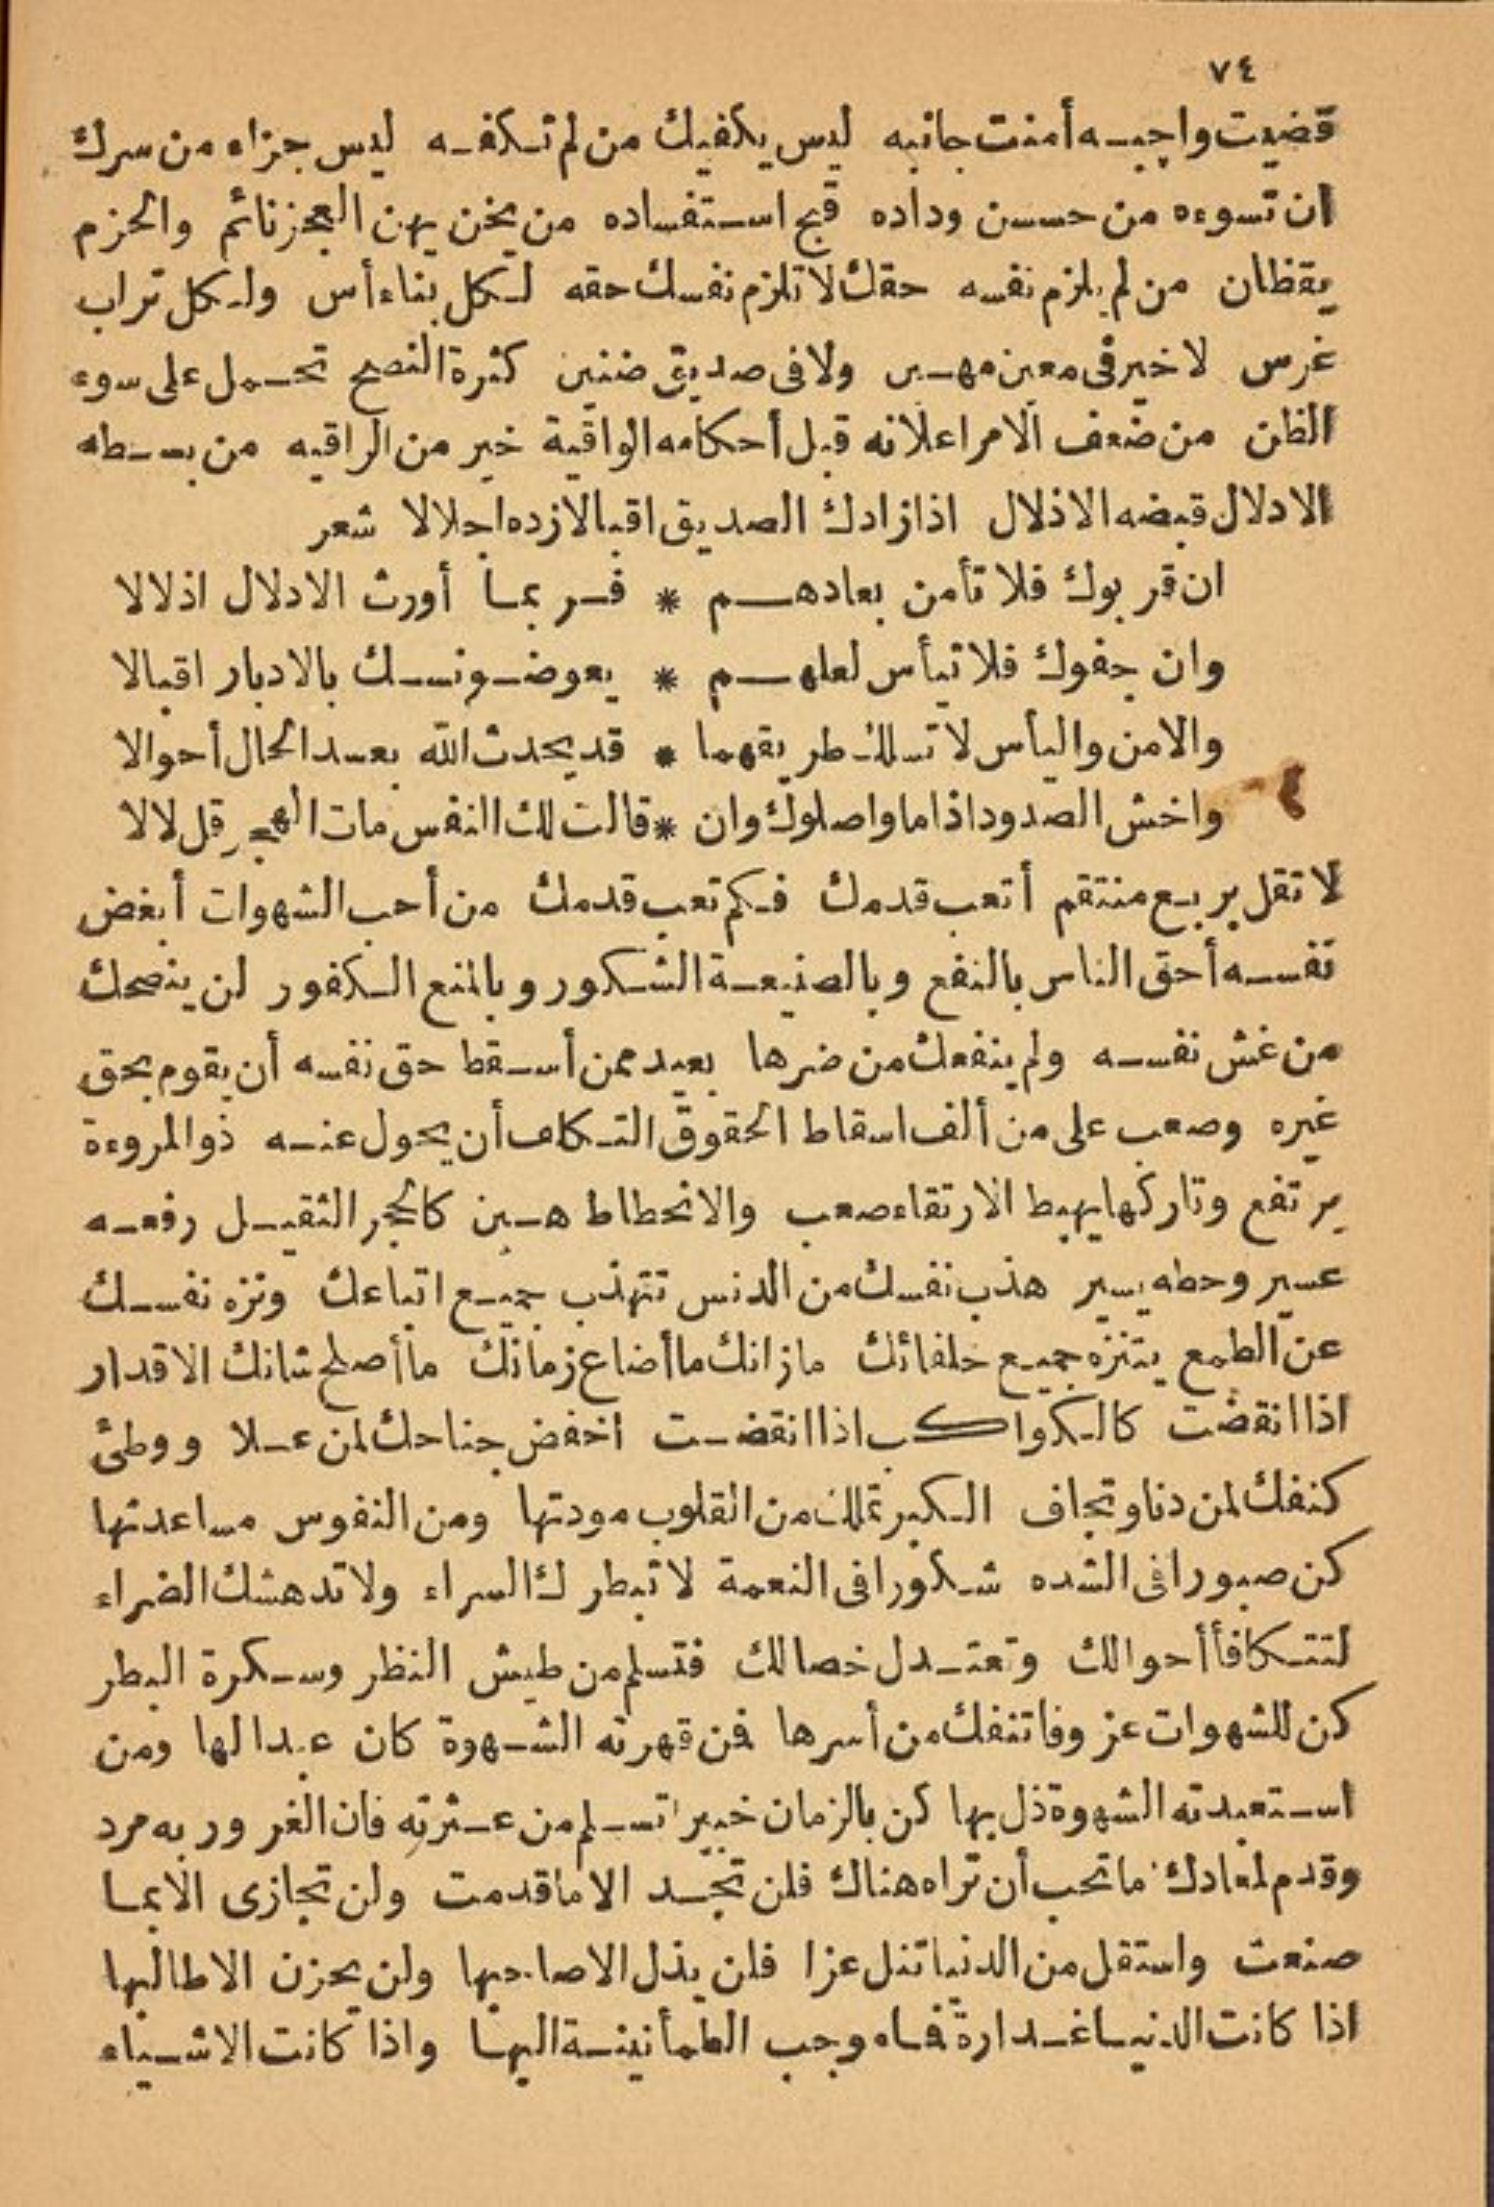 ٧٤
قضيت واجبه أمنت جانبه ليس يكفيك من لم تكفه ليس جزاء من سرك
ان تسوءه من حسن وداده قبح استفساده من يخن يهن العجز نائم والحزم
يقظان من لم يلزم نفسه حقك لا تلزم نفسك حقه لكل بناء أس ولكل تراب
غرس لا خير في معين مهين ولا فى صديق ضنين كثرة النصح تحمل على سوء
الظن من ضعف الامر اعلانه قبل أحكامه الواقية خير من الراقيه من بسطه
الادلال قبضه الاذلال اذا زادك الصديق اقبالا زده اجلالا شعر
ان قربوك فلا تأمن بعادهم * فربما أورث الادلال اذلالا
وان جفوك فلا تيأس لعلهم * يعوضونك بالادبار اقبالا
والامن واليأس لا تسلك طريقهما * قد يحدث الله بعد الحال أحوالا
واخش الصدود اذا ما واصلوك وان * قالت لك النفس مات الهجر قل لالا
لا تقل بربع منتقم أتعب قدمك فكم تعب قدمك من أحب الشهوات أبغض
نفسه أحق الناس بالنفع وبالصنيعة الشكور وبالمنع الكفور لن ينصحك
من غش نفسه ولم ينفعك من ضرها بعيد ممن أسقط حق نفسه أن يقوم بحق
غيره وصعب على من ألف اسقاط الحقوق التكلف أن يحول عنه ذو المروءة
يرتفع وتاركها يهبط الارتقاء صعب والانحطاط هين كالحجر الثقيل رفعه
عسير وحطه يسير هذب نفسك من الدنس تتهذب جميع اتباعك ونزه نفسك
عن الطمع يتنزه جميع خلفائك ما زانك ما أضاع زمانك ما أصلح شانك الاقدار
اذا انقضت كالكواكب اذا انقضت اخفض جناحك لمن علا ووطئ
كنفك لمن دنا وتجاف الكبر تملك من القلوب مودتها ومن النفوس مساعدتها
كن صبورا فى الشده شكورا فى النعمة لا تبطرك السراء ولا تدهشك الضراء
لتتكافأ أحوالك وتعتدل خصالك فتسلم من طيش النظر وسكرة البطر
كن للشهوات عزوفا تنفك من أسرها فمن قهرته الشهوة كان عبدا لها ومن
استعبدته الشهوة ذل بها كن بالزمان خبيرا تسلم من عثرته فان الغرور به مرد
وقدم لمعادك ما تحب أن تراه هناك فلن تجد الا ما قدمت ولن تجازى الا بما
صنعت واستقل من الدنيا تنل عزا فلن يذل الا صاحبها ولن يحزن الا طالبها
اذا كانت الدنيا غدارة فاه وجب الطمأنينة اليها واذا كانت الاشياء